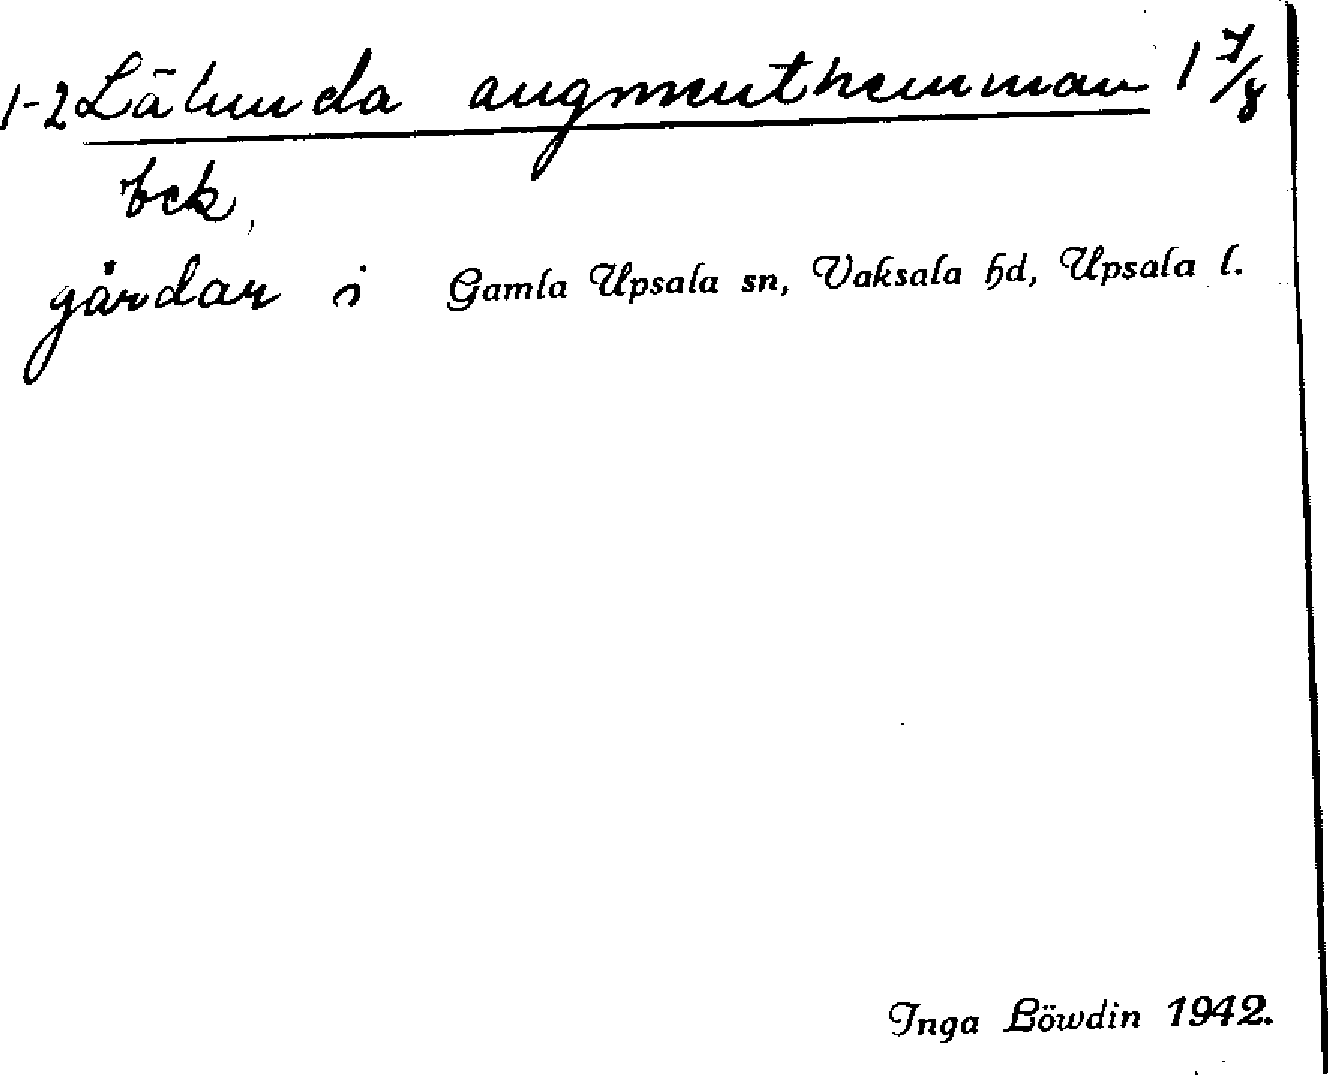 1-2 Lähunda augmenthemman 1 7/8
bck,
gårdar i Gamla Upsala sn, Vaksala hd, Upsala l.
Inga Löwdin 1942.